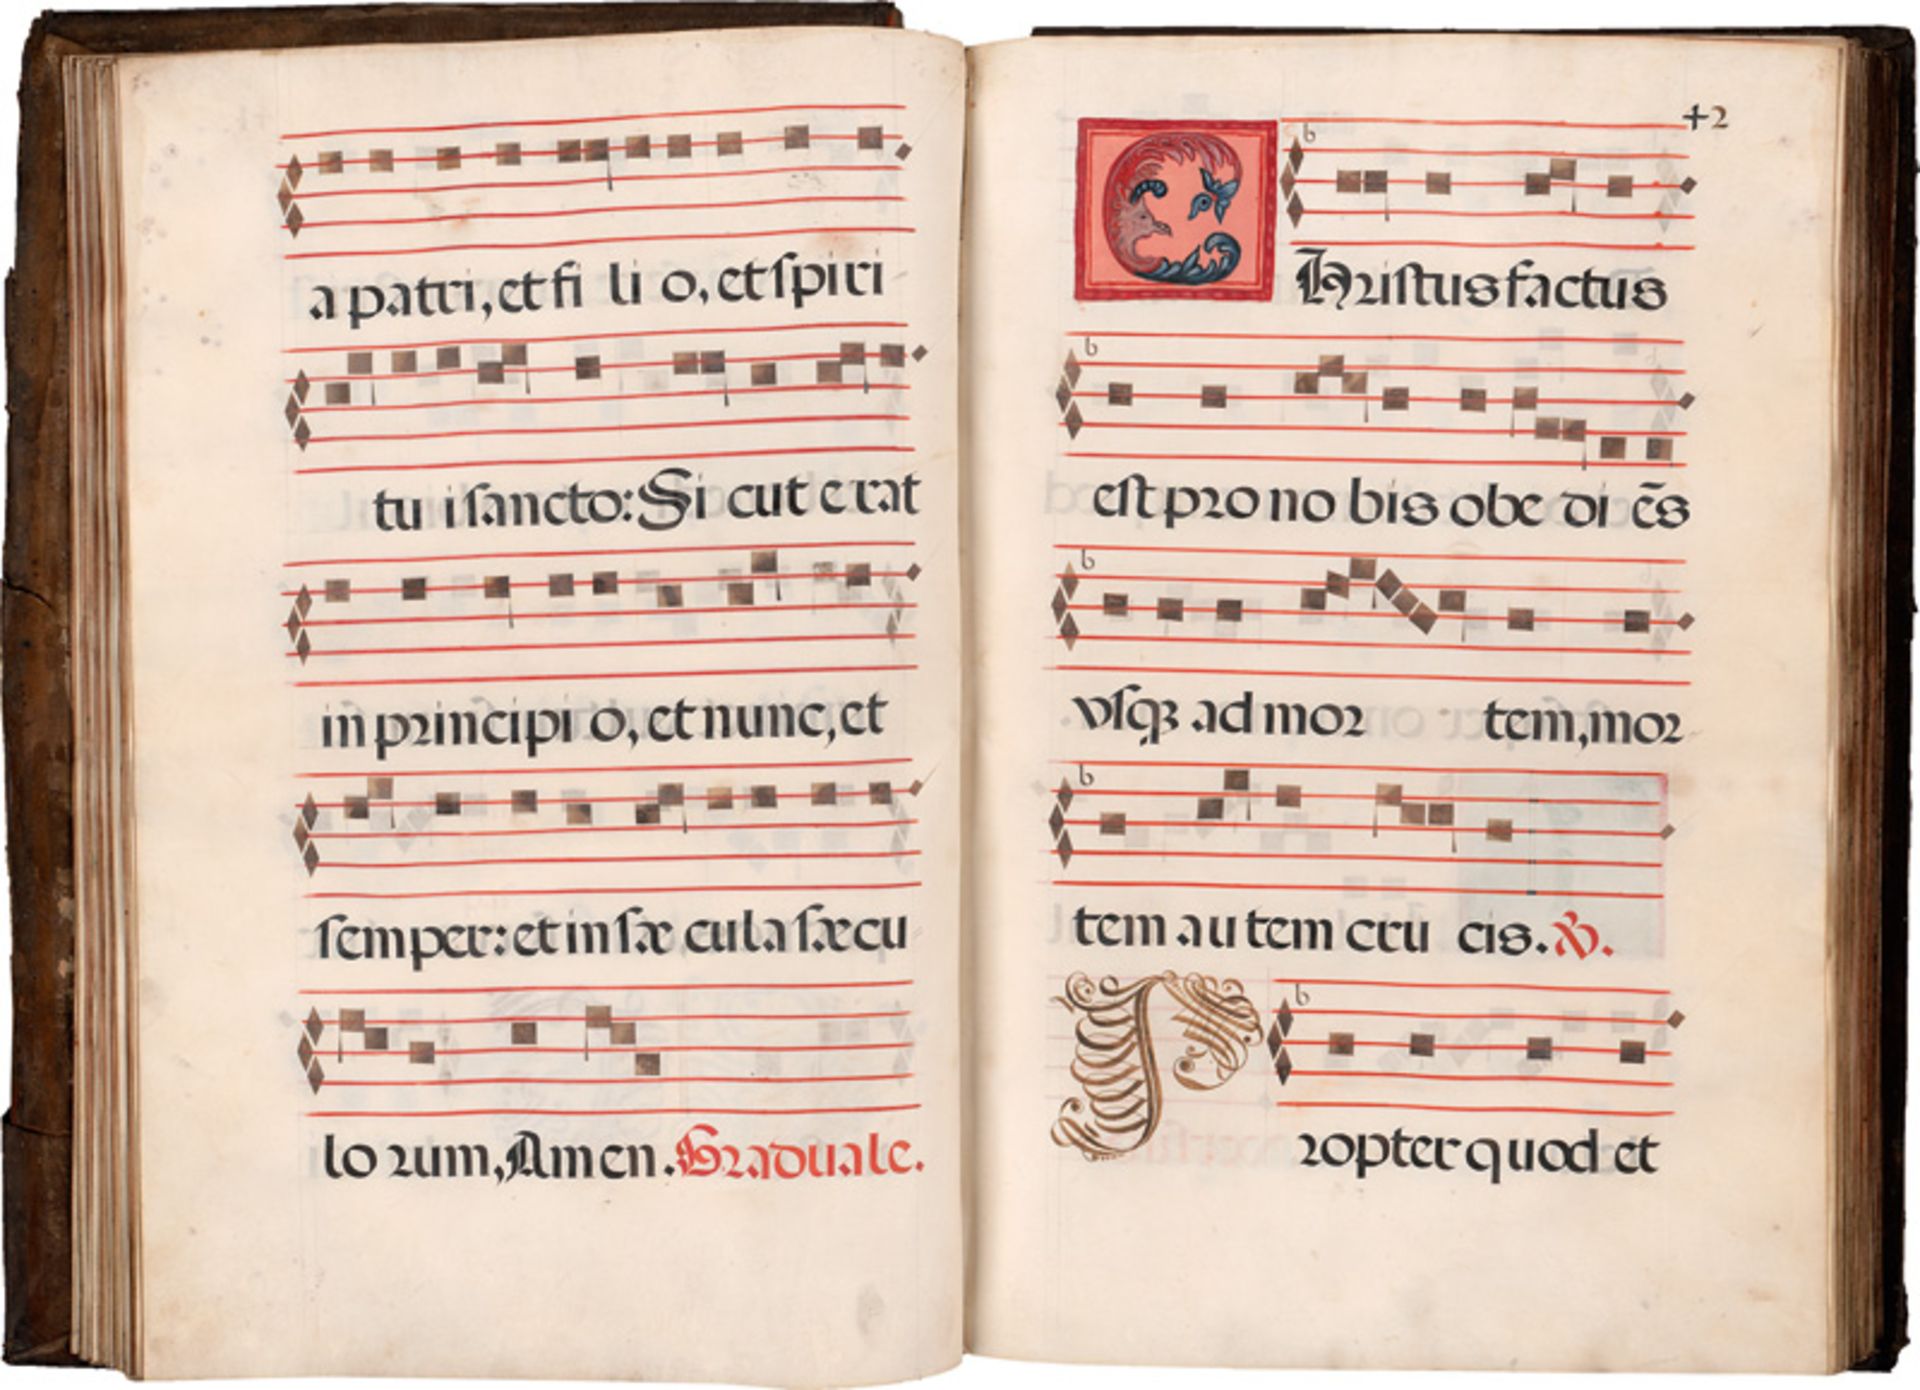 a patri, et fi li o, et spiri
tu i sancto: Si cut e rat
in principi o, et nunc, et
semper: et in sæ cula sæcu
lo rum, Amen. Graduale.
42
CHristus factus
est pro no bis obe di ẽs
vsqꝫ ad mor tem, mor
tem au tem cru cis. ℣.
Propter quod et